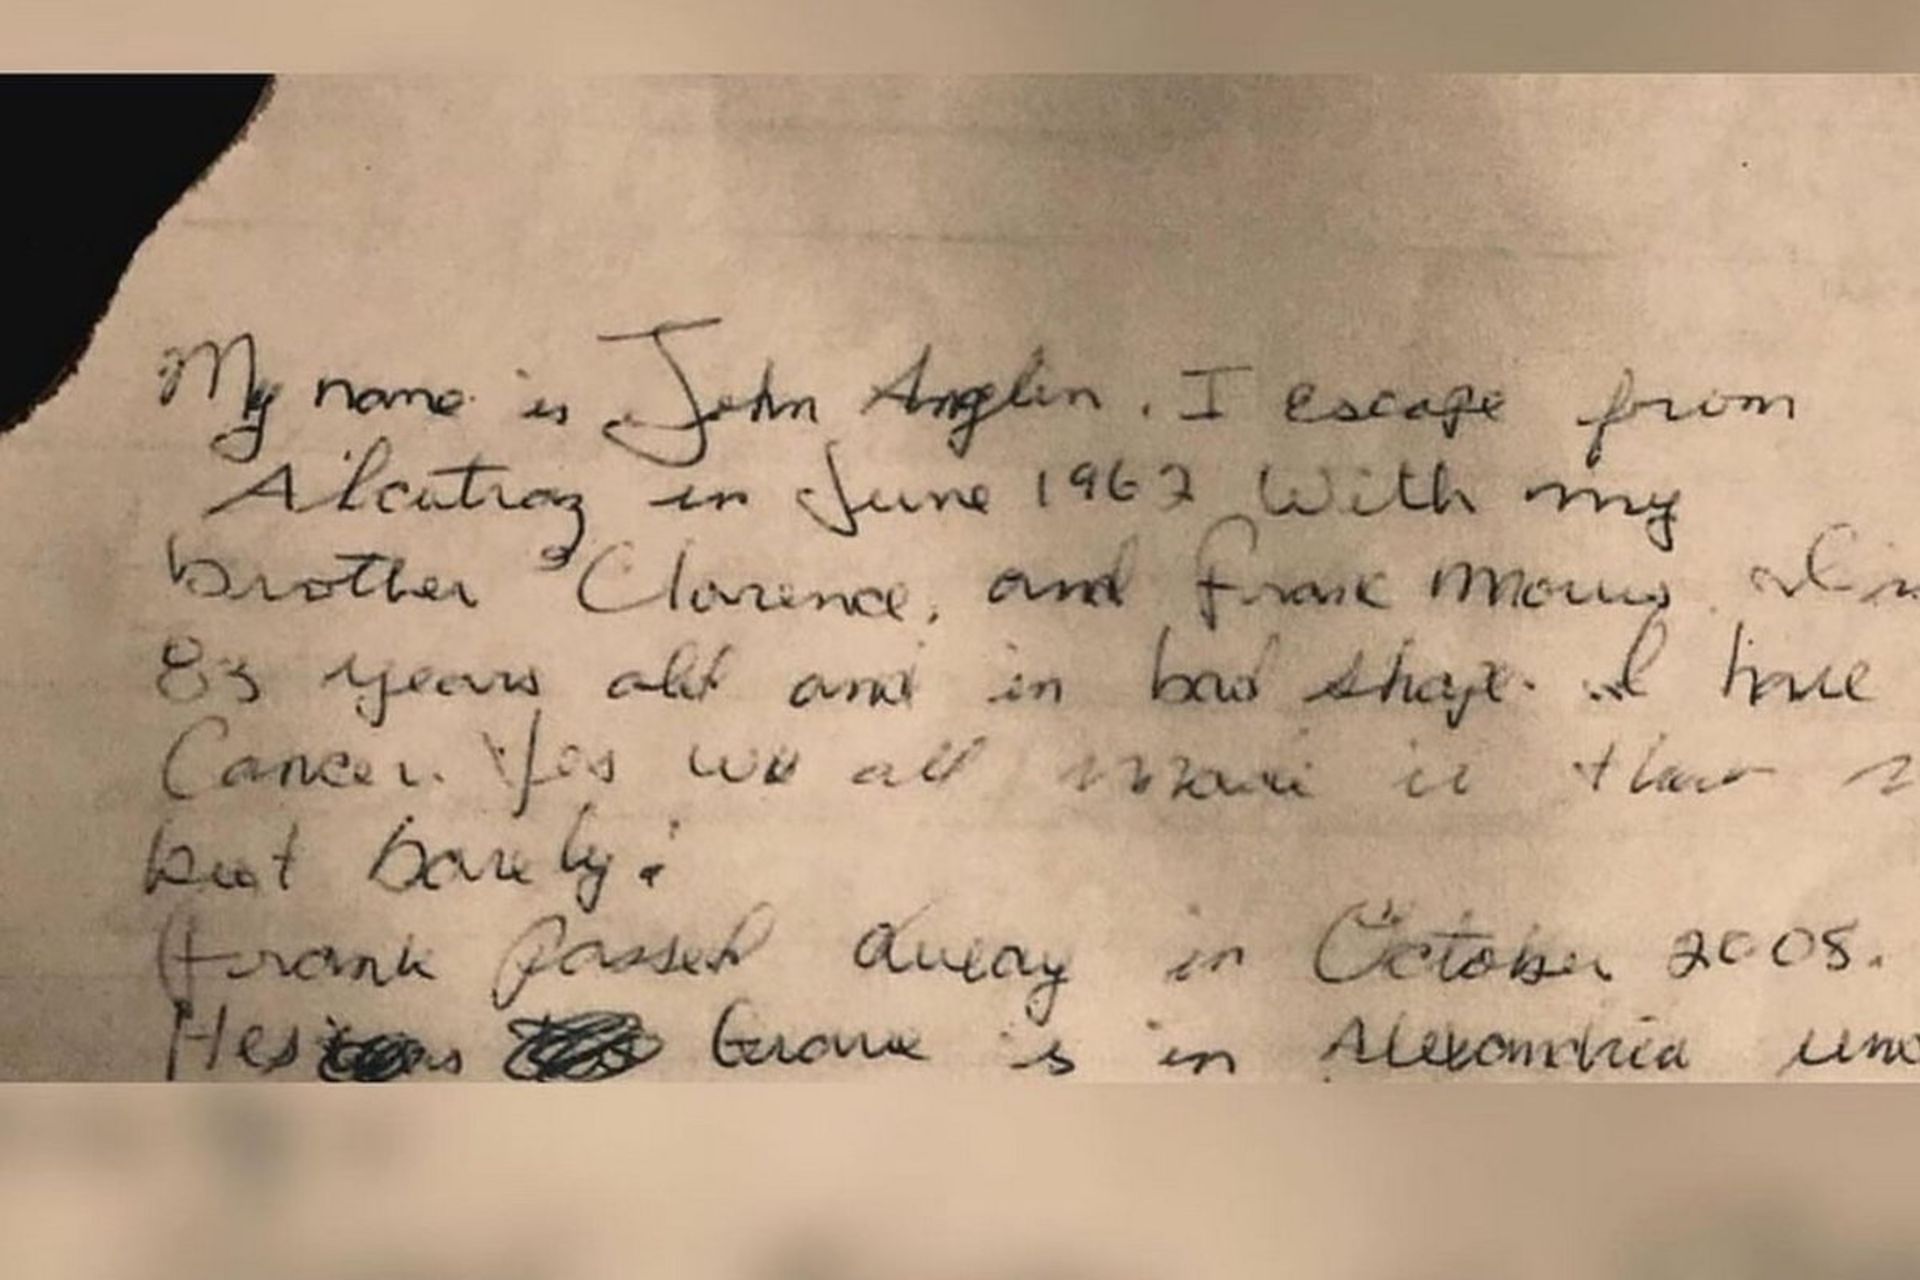 My name is John Anglin. I escape from
Alcatraz in June 1962 With my
brother Clarence, and Frank Morris. I'm
83 years old and in bad shape. I have
Cancer. Yes we all made it that
but barely!
Frank passed away in October 2005.
Hes Grave is in Alexandria